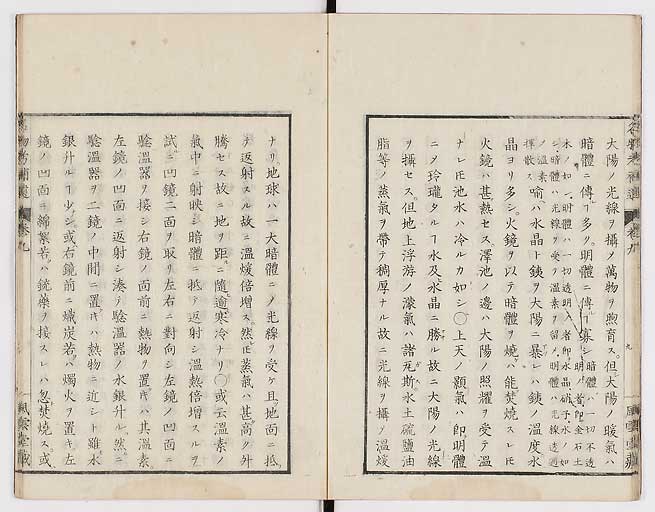 太陽ノ光線ヲ攝メ萬物ヲ煦育ス。但太陽ノ暖氣ハ
暗體ニ傳フ多ク。明體ニ傳フ寡シ
暗體ハ一切不透明ノ者即金石土
木ノ如シ明體ハ一切透明ノ者即水晶硝子水ノ如
シ暗體ハ光線ヲ受テ溫素ヲ留メ明體ハ光線透過
ノ溫素ヲ揮散ス
喩ハ水晶ト銕ヲ太陽ニ暴レハ銕ノ溫度水
晶ヨリ多シ。火鏡ヲ以テ暗體ヲ燒ハ能焚燒スレ𪜈
火鏡ハ甚熱セス。澤池ノ邊ハ太陽ノ照耀ヲ受テ溫
ナレ𪜈池水ハ冷ルカ如シ〇上天ノ顥氣ハ即明體
ニノ玲瓏タルヿ水及水晶ニ勝ル故ニ太陽ノ光線
ヲ攝セス。但地上浮游ノ濛氣ハ諸瓦斯水土礦鹽油
脂等ノ蒸氣ヲ帶テ稠厚ナル故ニ光線ヲ攝メ溫煖
ナリ。地球ハ一大暗體ニノ光線ヲ受ケ且地面ニ抵
テ返射スル故ニ溫煖倍增ス。然𪜈蒸氣ハ甚高ク外
騰セス故ニ地ヲ距ルニ隨逾寒冷ナリ〇或云溫素
氣中ニ射映シ暗體ニ抵テ返射シ溫熱倍增スルヲ
試ルニ凹鏡二面ヲ取リ左右ニ對向シ左鏡ノ凹面ニ
驗溫器ヲ接シ右鏡ノ面前ニ熱物ヲ置キハ其溫素
左鏡ノ凹面ニ返射シ湊テ驗溫器ノ水銀升ル。然ルニ
驗溫器ヲ二鏡ノ中間ニ置キハ熱物ニ近シト雖水
銀升ルヿ少シ。或右鏡前ニ熾炭若ハ燭火ヲ置キ左
鏡ノ凹面ニ綿絮若ハ銃藥ヲ接スレハ忽焚燒ス。或